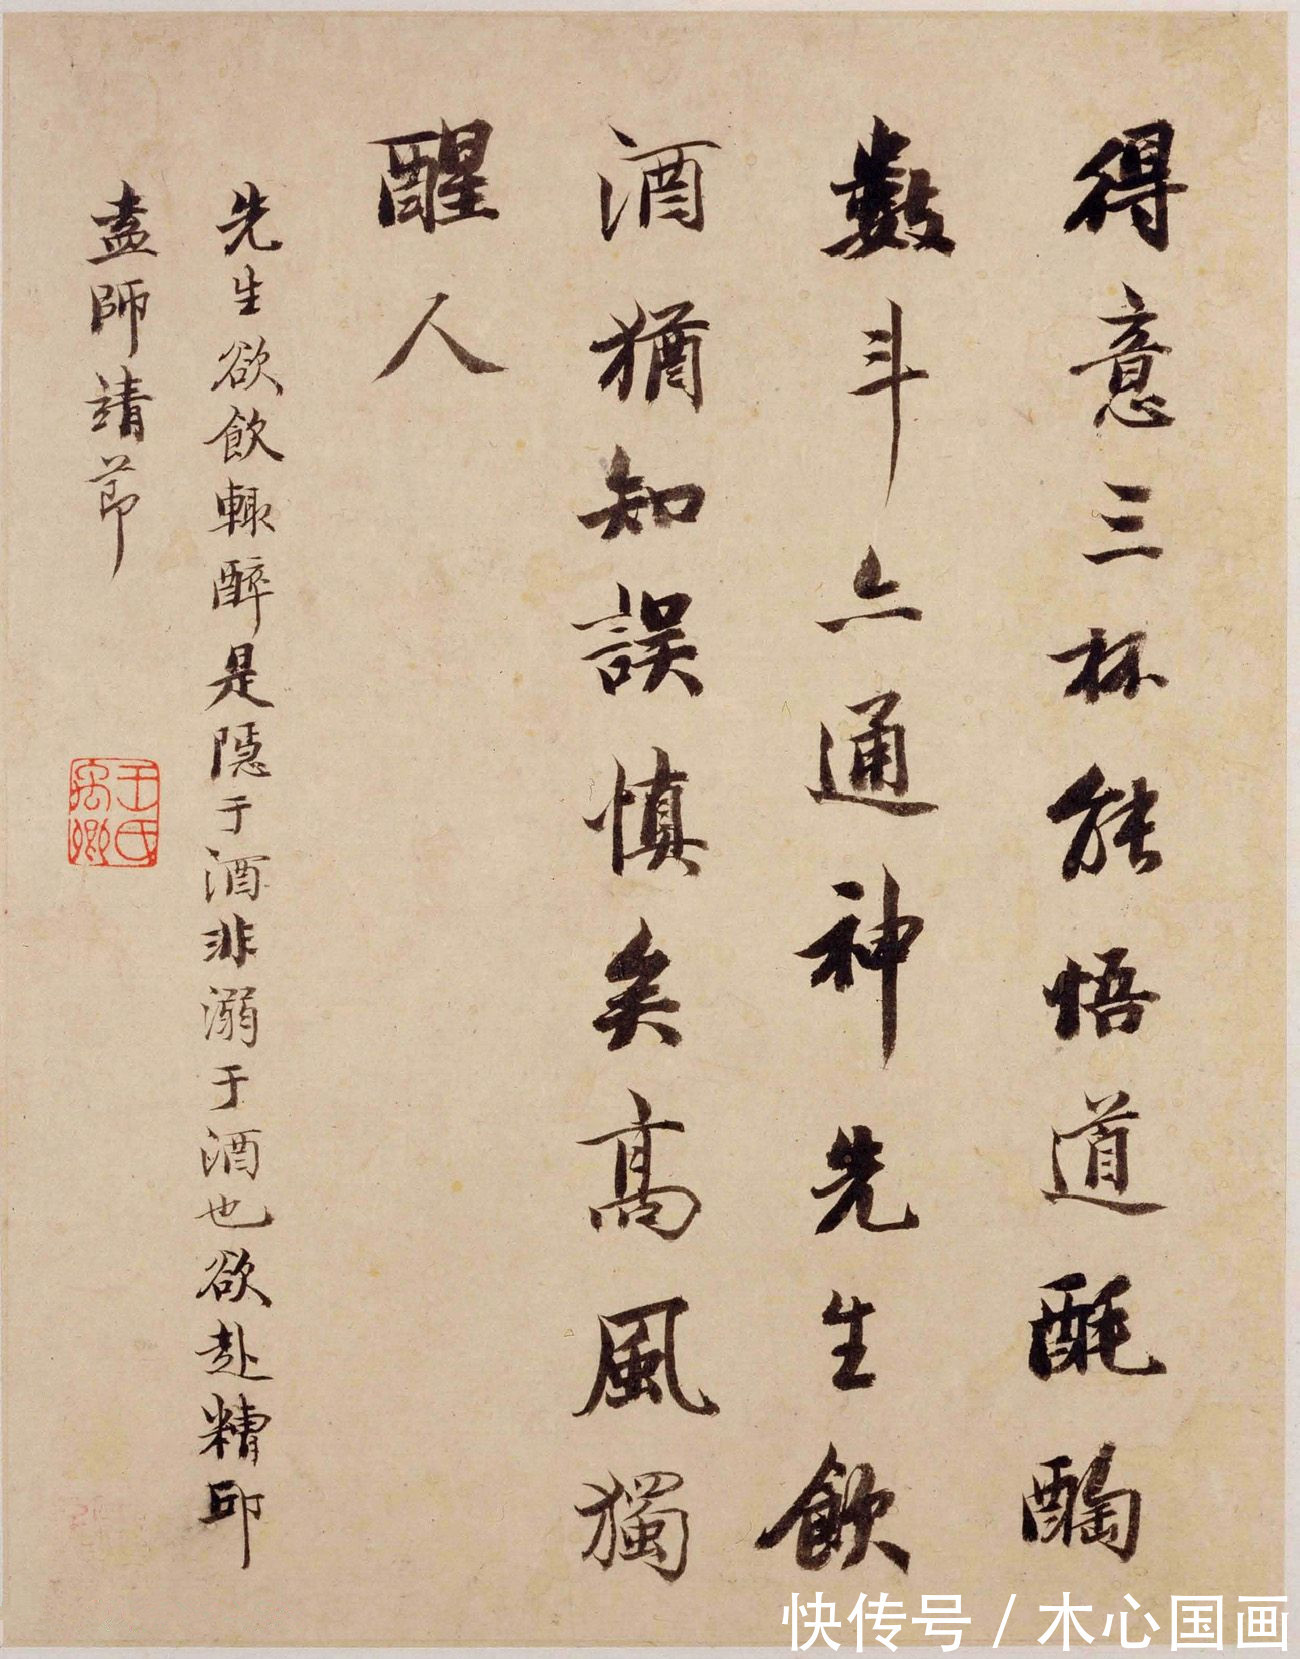 得意三杯能悟道酕醄
數斗亠通神先生飲
酒猶知誤慎矣高風獨
醒人
先生欲飲輒醉是隱于酒非溺于酒也欲赴糟邱
盍師靖節
王氏
快传号 / 木心国画